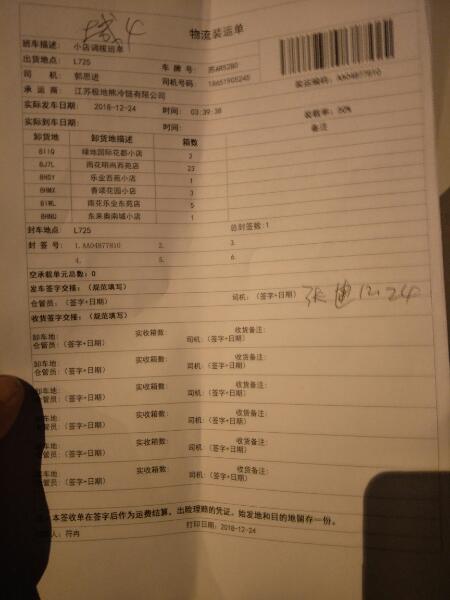 物流装运单
班车描述: 小店调拨班单
出货地点: L725 车牌号: 苏AR5280
司 机: 郭思进 司机号码: 18651905245 装运编码: AA04877810
承运商: 江苏极地熊冷链有限公司
实际发车日期: 2018-12-24 时间: 03:39:38 装载率: 50%
实际到车日期: 时间: 备注
卸货地 卸货地描述 箱数
8IIQ 绿地国际花都小店 2
8J7L 雨花明尚西苑店 23
8HSY 乐业西苑小店 1
8HMX 香颂花园小店 3
8IWL 雨花乐业东苑店 5
8HNU 东来奥南城小店 1
封车地点: L725 总封签数:1
封签号: 1.AA04877810 2. 3.
4. 5. 6.
空承载单元总数: 0
发车签字交接: (规范填写)
仓管员: (签字+日期) 司机: (签字+日期) 张迪 12.24
收货签字交接: (规范填写)
卸车地: 实收箱数: 收货备注:
仓管员: (签字+日期) 司机: (签字+日期)
卸车地: 实收箱数: 收货备注:
仓管员: (签字+日期) 司机: (签字+日期)
卸车地: 实收箱数: 收货备注:
管员: (签字+日期) 司机: (签字+日期)
车地: 实收箱数: 收货备注:
管员: (签字+日期) 司机: (签字+日期)
车地: 实收箱数: 收货备注:
管员: (签字+日期) 司机: (签字+日期)
车地: 实收箱数: 收货备注:
管员: (签字+日期) 司机: (签字+日期)
本签收单在签字后作为运费结算、出险理赔的凭证，始发地和目的地留存一份。
人: 符冉 打印日期: 2018-12-24